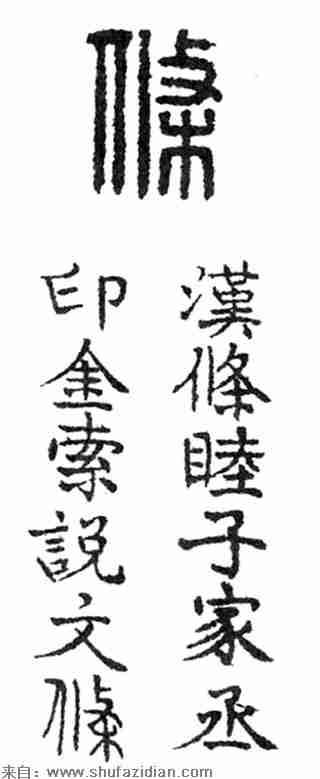 條
漢條睦子家丞
印金索説文條
来自：www.shufazidian.com